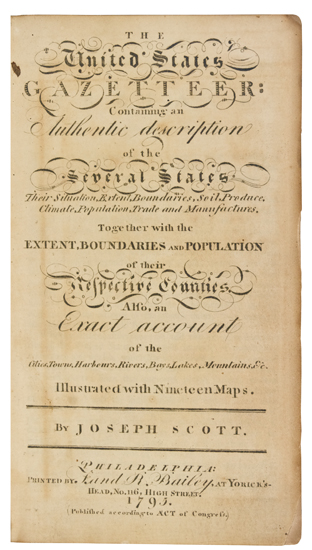 THE
United States
GAZETTEER:
Containing an
Authentic description
of the
Several States.
Their Situation, Extent, Boundaries, Soil, Produce,
Climate, Population, Trade and Manufactures.
Together with the
EXTENT, BOUNDARIES AND POPULATION
of their
Respective Counties.
Also, an
Exact account
of the
Cities, Towns, Harbours, Rivers, Bays, Lakes, Mountains, &c.
Illustrated with Nineteen Maps.
BY JOSEPH SCOTT.
PHILADELPHIA:
PRINTED BY F. and R. Bailey, AT YORICK'S-
HEAD, No. 116, HIGH STREET.
1795.
(Published according to ACT of Congress.)